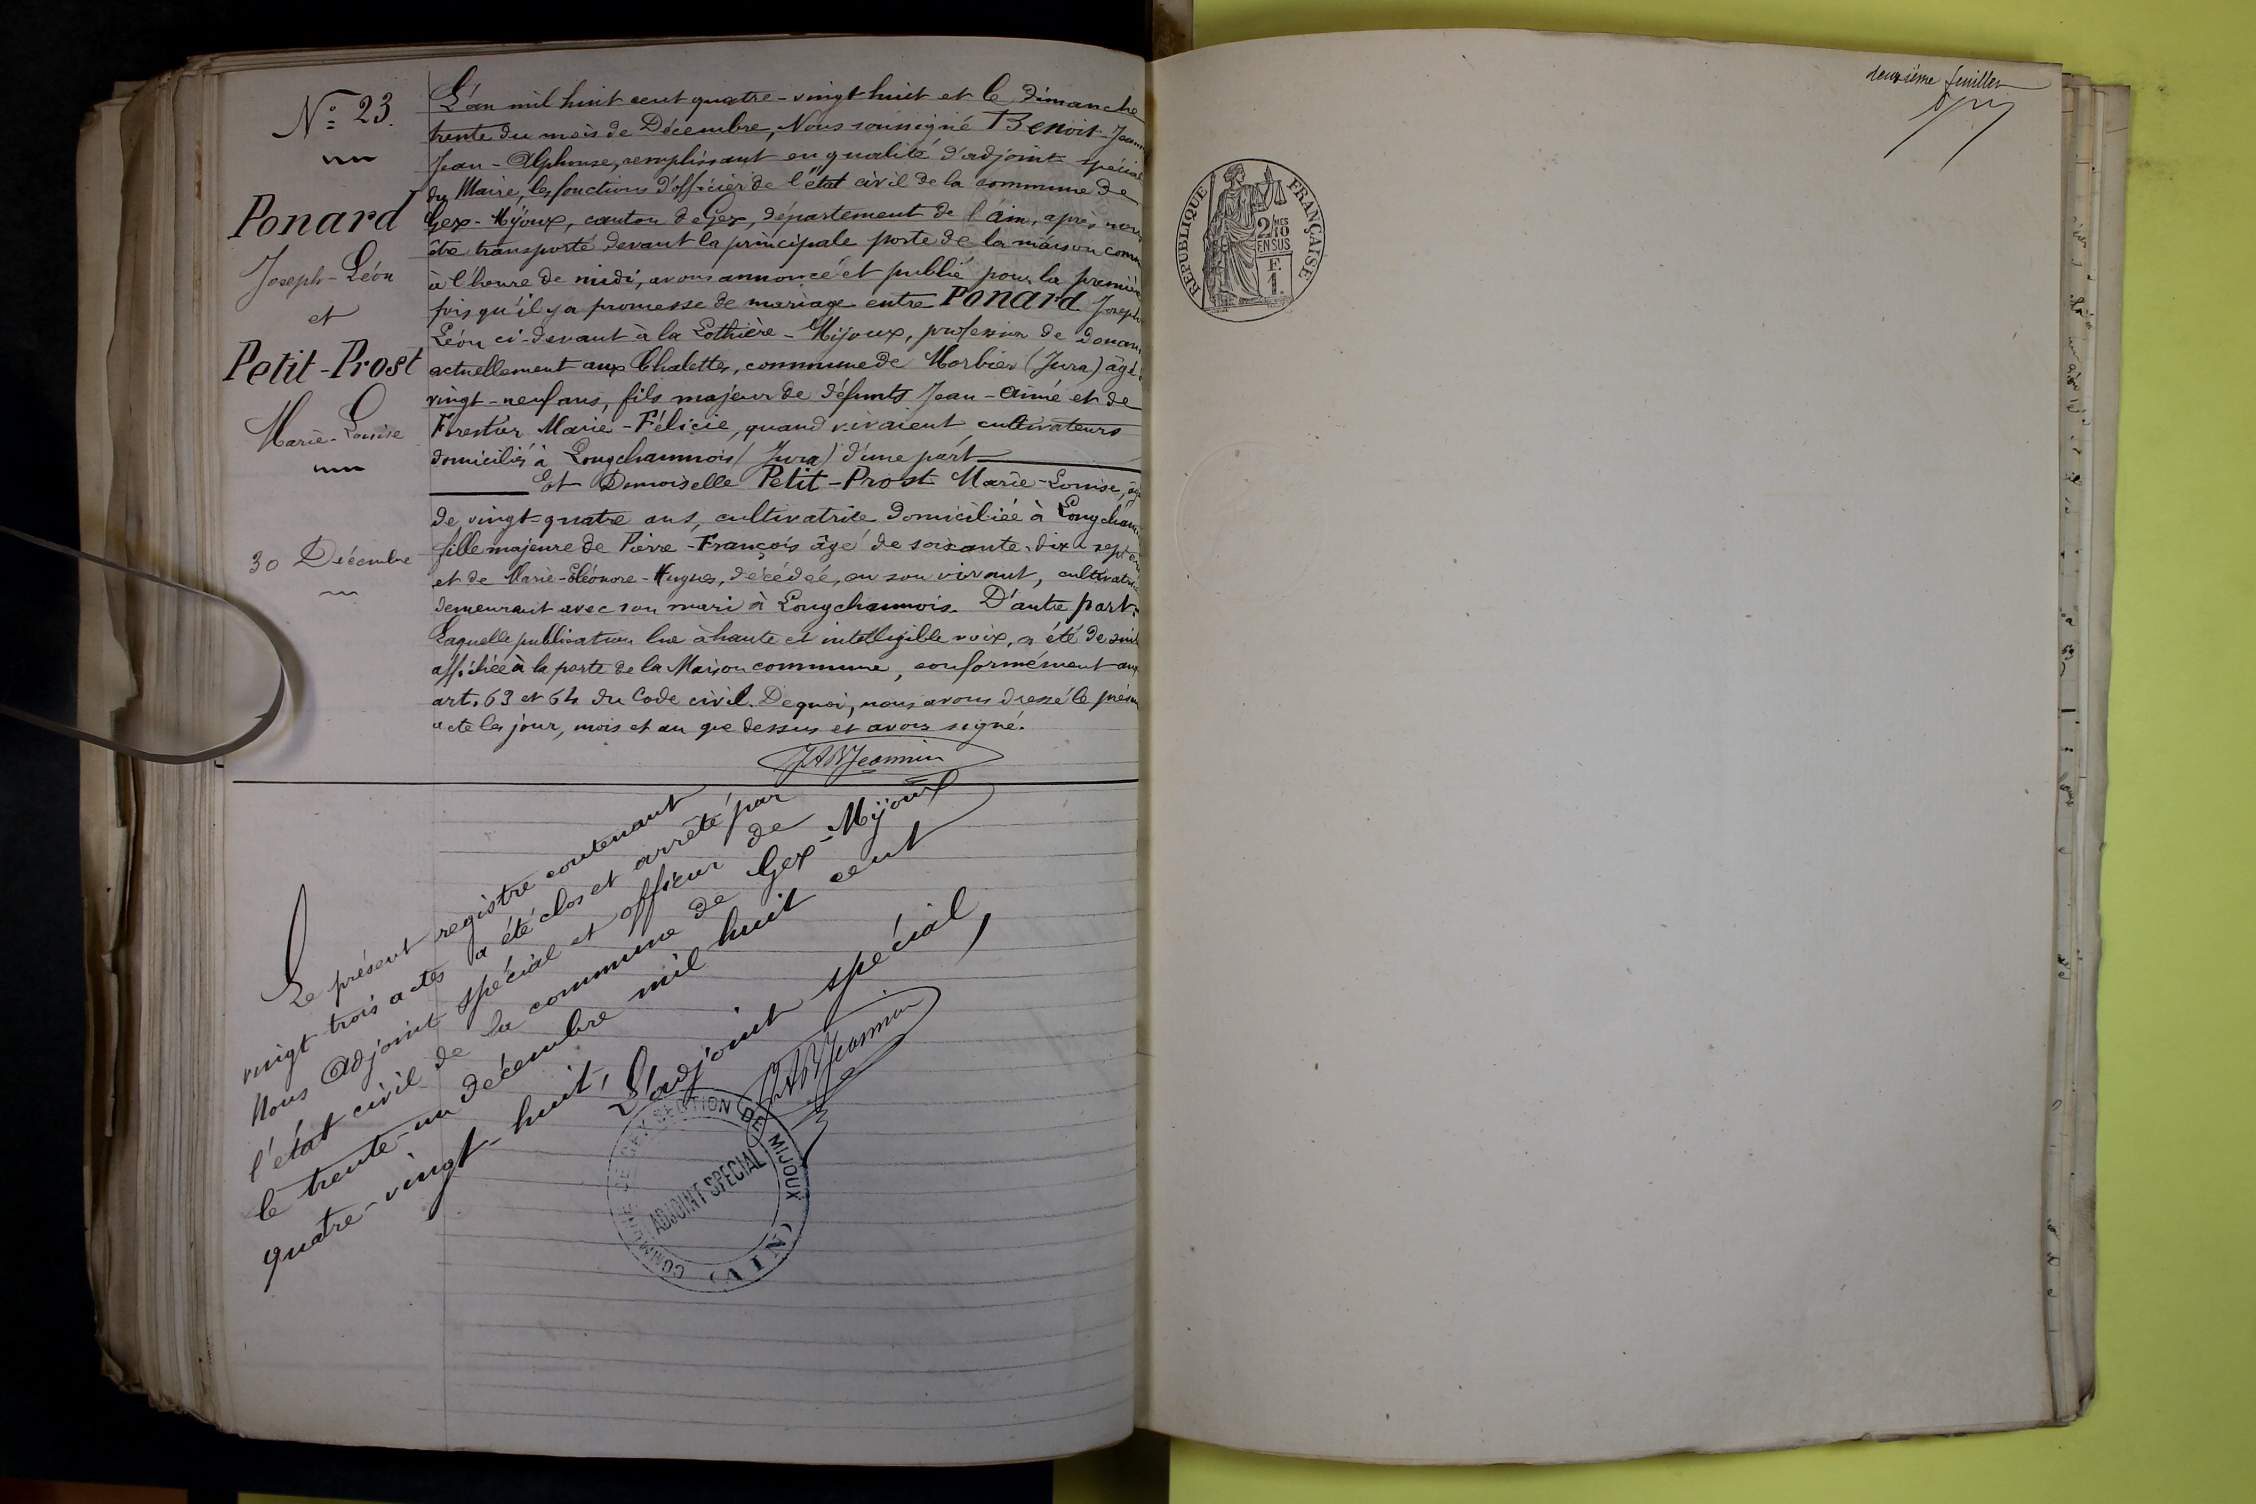 N° 23.
Ponard
Joseph-Léon
et
Petit-Prost
Marie-Louise
30 Décembre
L'an mil huit cent quatre-vingt-huit et le dimanche
trente du mois de Décembre, Nous soussigné Benoit-Jeannin
Jean-Alphonse, remplissant en qualité d'adjoint spécial
du Maire, les fonctions d'officier de l'état civil de la commune de
Gex-Mijoux, canton de Gex, département de l'ain, après nous
être transporté devant la principale porte de la maison comm
à l'heure de midi, avons annoncé et publié pour la première
fois qu'il y a promesse de mariage entre Ponard Joseph
Léon ci-devant à la Mijoux, profession de douan
actuellement aux Chalettes, commune de Morbier (Jura) âgé
vingt-neuf ans, fils majeur de défunts Jean-Aimé et de
Forestier Marie-Félicie, quand vivaient cultivateurs
domiciliés à Longchaumois (Jura) d'une part
Et Demoiselle Petit-Prost Marie-Louise, âgé
de vingt-quatre ans, cultivatrice domiciliée à Longchaum
fille majeure de Pierre-François âgé de soixante-dix-sept ans
et de Marie-Eléonore-Hugues, décédée, en son vivant, cultivatrice
demeurant avec son mari à Longchaumois. D'autre part.
Laquelle publication lue à haute et intelligible voix, a été de suite
affichée à la porte de la Maison commune, conformément aux
art. 63 et 64 du Code civil. De quoi, nous avons dressé le présent
acte les jour, mois et an que dessus et avons signé.
JABJeannin
Le présent registre contenant
vingt trois actes a été clos et arrêté par
Nous Adjoint spécial et officier de
l'état civil de la commune de Gex-Mijoux
le trente-un décembre mil huit cent
quatre-vingt-huit,
L'adjoint spécial,
JABJeannin
COMMUNE DE GEX SECTION DE MIJOUX
ADJOINT SPÉCIAL
(AIN)
deuxième feuillet
RÉPUBLIQUE FRANÇAISE
2/10
EN SUS
F.
1.